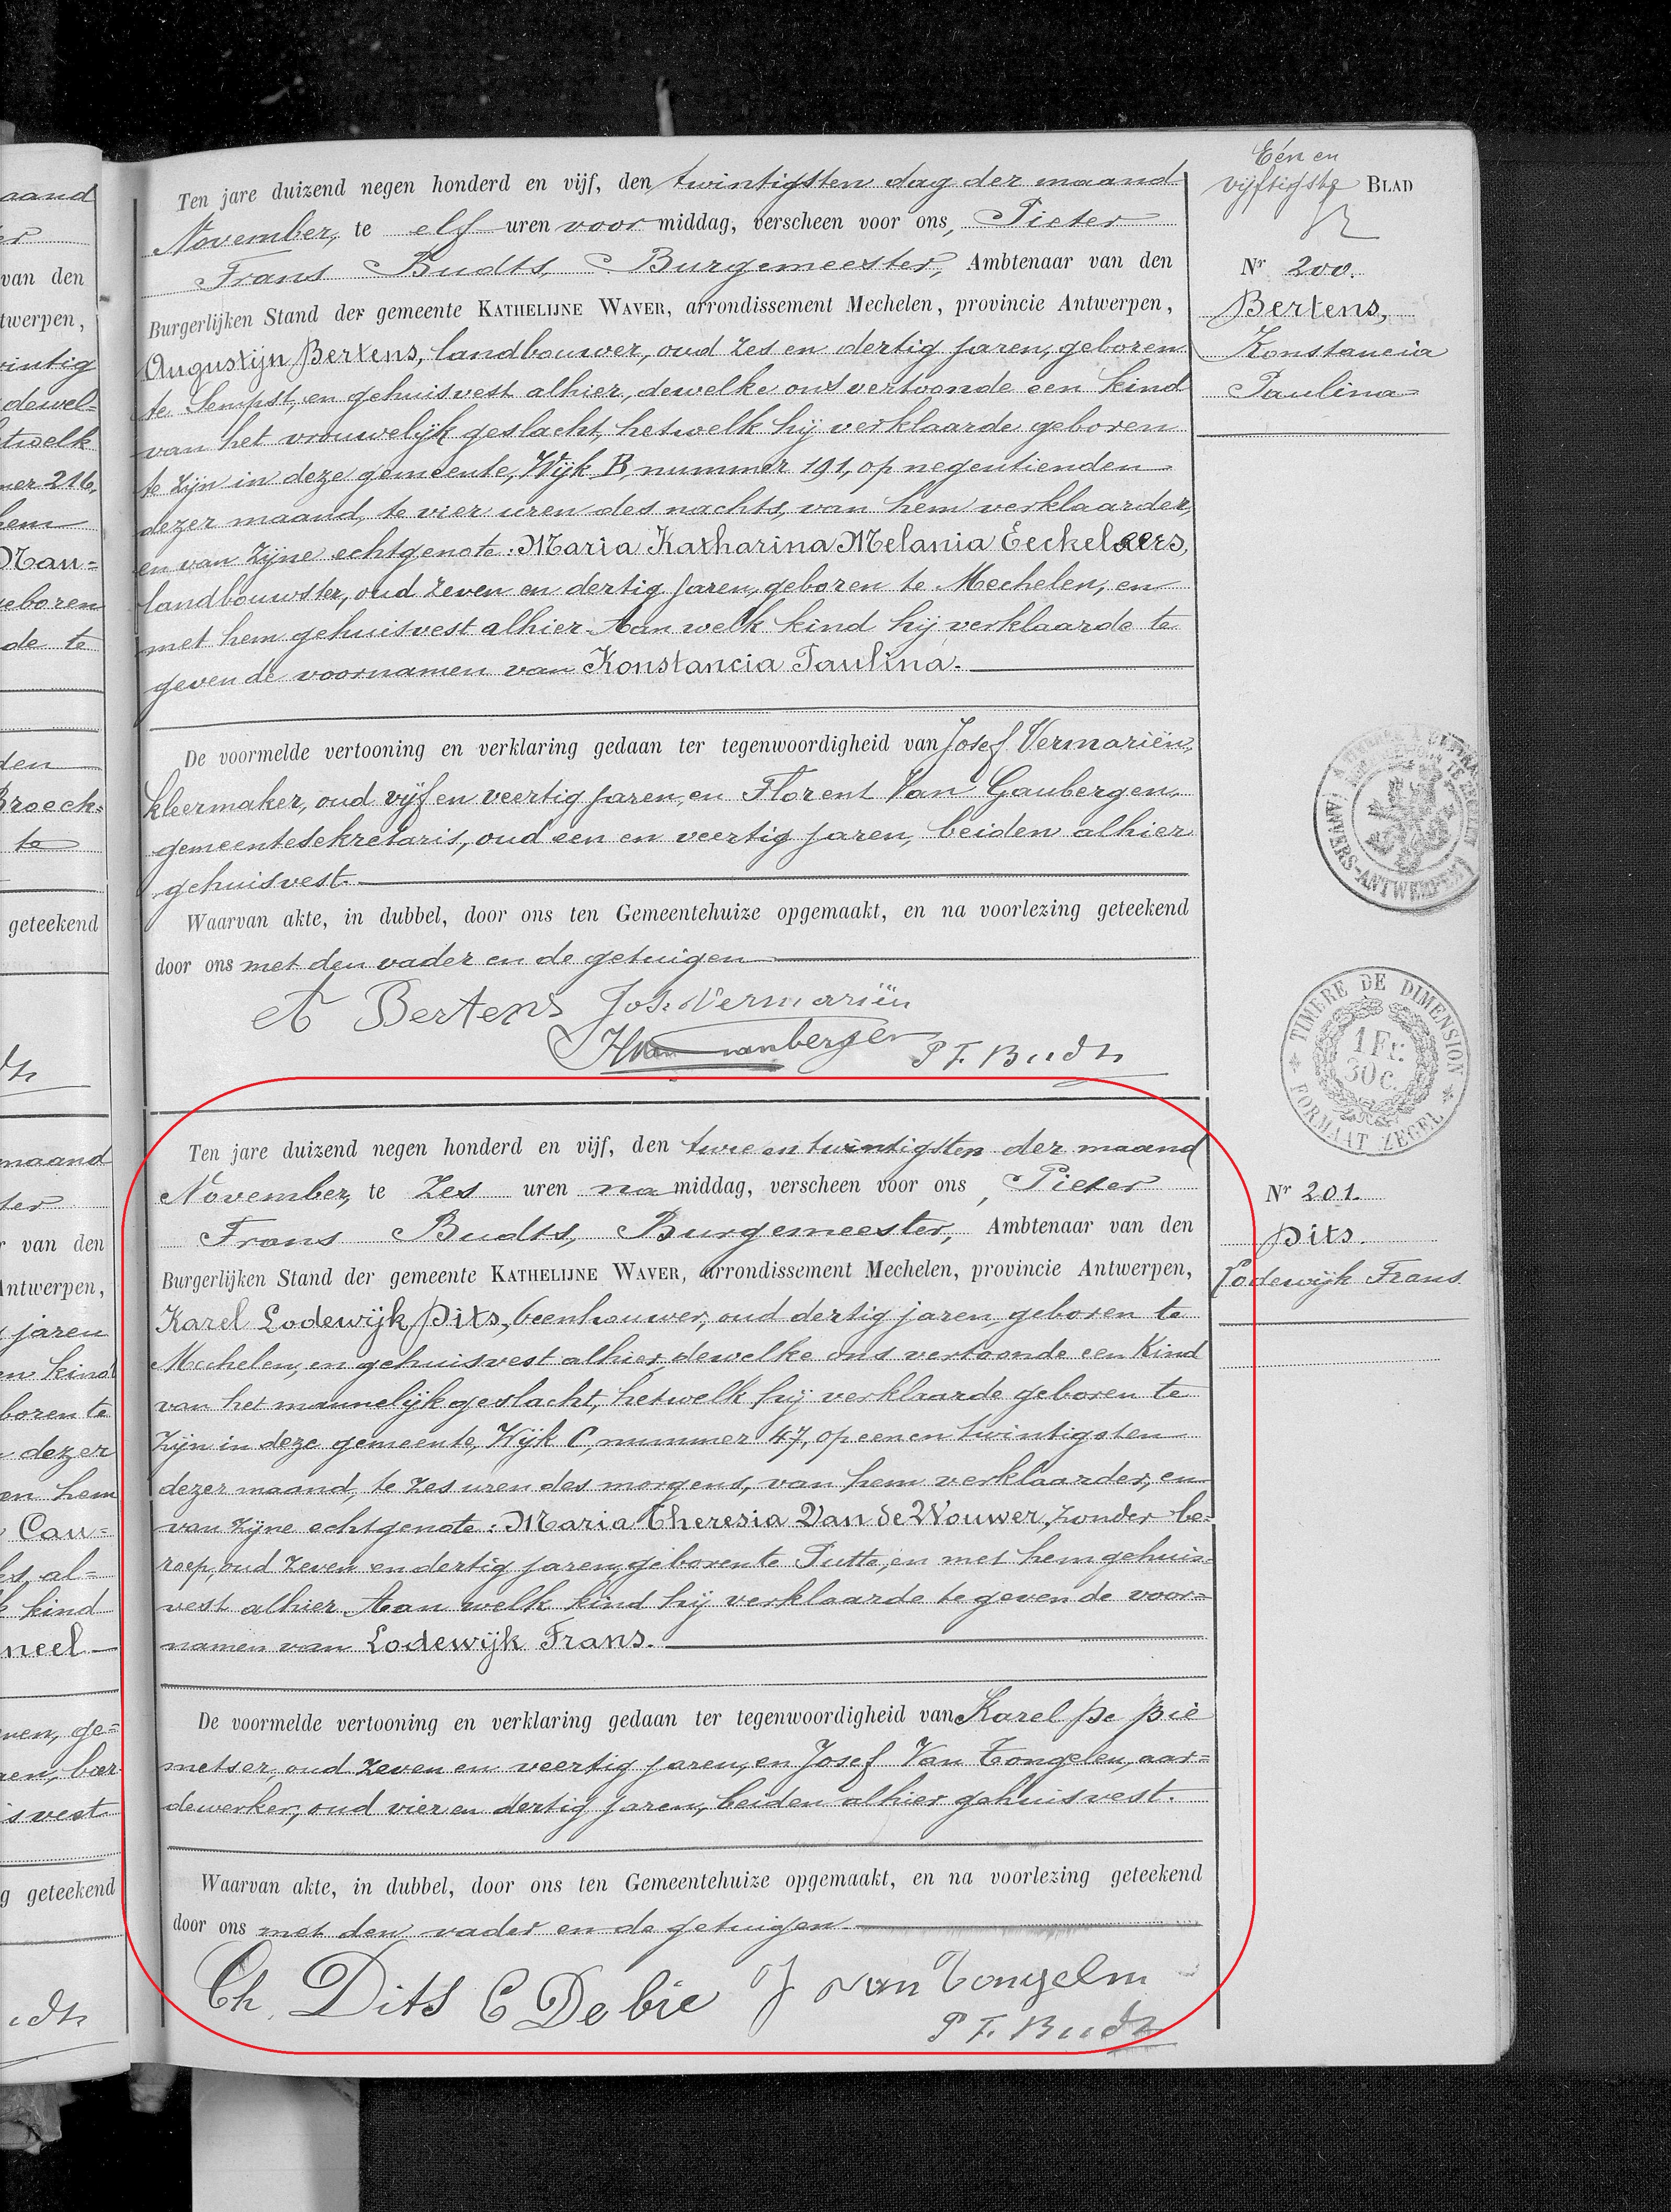 aand
er
van den
twerpen,
intig
dewel=
twelk
mer 216,
hem
Mau=
geboren
de te
den
Broeck=
te
geteekend
maand
ter
van den
Antwerpen,
jaren
en kind
boren te
dezer
en hem
Cau=
es, al=
k kind
neel
ven, ge=
isvest
g geteekend
Eén en
vijftigste BLAD
Ten jare duizend negen honderd en vijf, den twintigsten dag der maand
November, te elf uren voor middag, verscheen voor ons, Pieter
Frans Budts, Burgemeester, Ambtenaar van den
Burgerlijken Stand der gemeente KATHELIJNE WAVER, arrondissement Mechelen, provincie Antwerpen,
Augustijn Bertens, landbouwer, oud zes en dertig jaren, geboren
te Sempst, en gehuisvest alhier, dewelke ons vertoonde een kind
van het vrouwelijk geslacht, hetwelk hij verklaarde geboren
te zijn in deze gemeente, Wijk B, nummer 191, op negentienden
dezer maand, te vier uren des nachts, van hem verklaarder,
en van zijne echtgenote: Maria Katharina Melania Eeckelaers,
landbouwster, oud zeven en dertig jaren, geboren te Mechelen, en
met hem gehuisvest alhier. Aan welk kind hij verklaarde te
geven de voornamen van Konstancia Paulina.
De voormelde vertooning en verklaring gedaan ter tegenwoordigheid van Josef Vermariën,
kleermaker, oud vijf en veertig jaren, en Florent Van Gaubergen,
gemeentesekretaris, oud een en veertig jaren, beiden alhier
gehuisvest.
Waarvan akte, in dubbel, door ons ten Gemeentehuize opgemaakt, en na voorlezing geteekend
door ons met den vader en de getuigen
A Bertens Jos. Vermariën
P F. Budts
Nr 200.
Bertens,
Konstancia
Paulina
ANVERS-ANTWERPEN
TIMBRE DE DIMENSION
1 Fr.
30 C.
FORMAAT ZEGEL
Ten jare duizend negen honderd en vijf, den twee en twintigsten der maand
November, te zes uren na middag, verscheen voor ons, Pieter
Frans Budts, Burgemeester, Ambtenaar van den
Burgerlijken Stand der gemeente KATHELIJNE WAVER, arrondissement Mechelen, provincie Antwerpen,
Karel Lodewijk Dits, beenhouwer, oud dertig jaren, geboren te
Mechelen, en gehuisvest alhier, dewelke ons vertoonde een Kind
van het mannelijk geslacht, hetwelk hij verklaarde geboren te
zijn in deze gemeente, Wijk C, nummer 47, op een en twintigsten
dezer maand, te zes uren des morgens, van hem verklaarder, en
van zijne echtgenote: Maria Theresia Van de Wouwer, zonder be=
roep, oud zeven en dertig jaren, geboren te Putte, en met hem gehuis=
vest alhier. Aan welk kind hij verklaarde te geven de voor=
namen van Lodewijk Frans.
De voormelde vertooning en verklaring gedaan ter tegenwoordigheid van Karel De Bie
metser, oud zeven en veertig jaren, en Josef Van Tongelen, aar=
dewerker, oud vier en dertig jaren, beiden alhier gehuisvest.
Waarvan akte, in dubbel, door ons ten Gemeentehuize opgemaakt, en na voorlezing geteekend
door ons met den vader en de getuigen
Ch. Dits C De bie J van Tongelen
P F. Budts
Nr 201.
Dits.
Lodewijk Frans